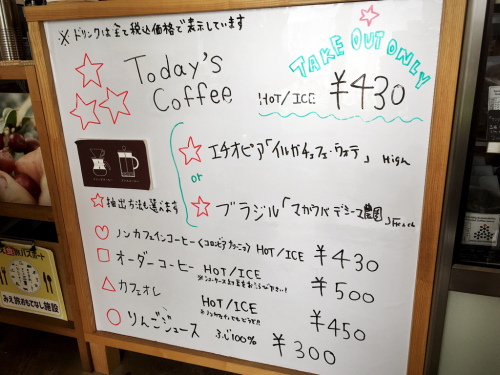 ※ドリンクは全て税込価格で表示しています
Today's
Coffee
TAKE OUT ONLY
HOT/ICE ¥430
エチオピア「イルガチェフェ・ウォテ」 High
or
ブラジル「マカウバ デシーマ農園」French
抽出方法も選べます
ノンカフェインコーヒー<コロンビア HOT/ICE ¥430
オーダーコヒー HOT/ICE ¥500
カフェオレ HOT/ICE ¥450
りんごジュース ふじ100% ¥300
パスポート
みえ旅おもてなし施設